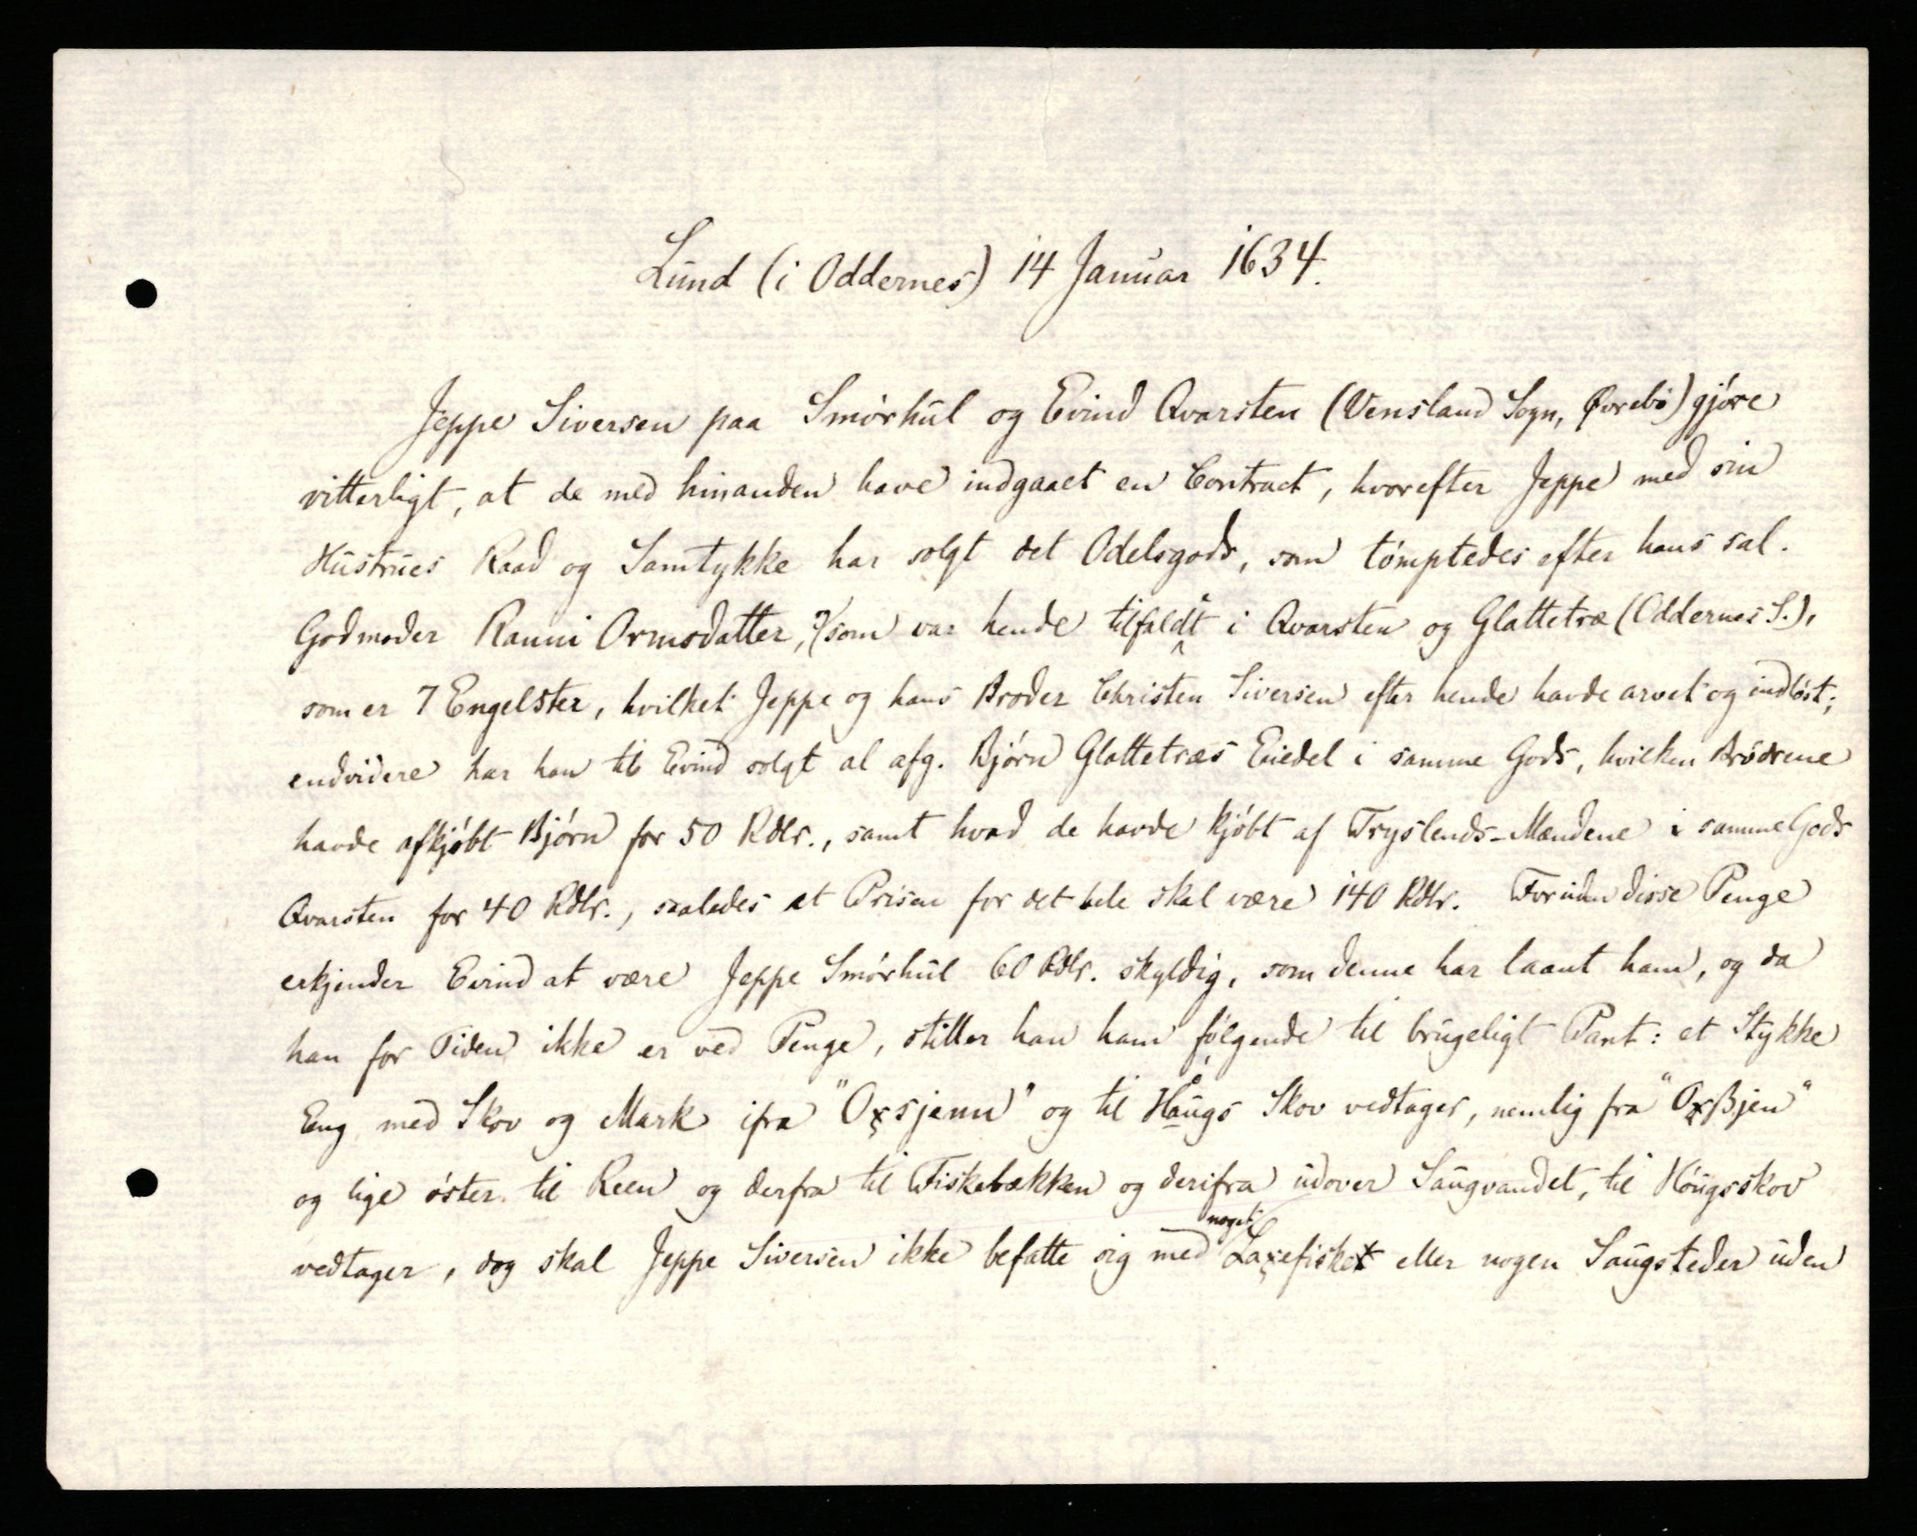 Lund (i Oddernes) 14 Januar 1634.
Jeppe Siversen paa Smørhul og Evind Qvarsten (Vensland Sogn, Øvrebø) gjøre
vitterligt, at de med hinanden have indgaaet en Contract, hvorefter Jeppe med sin
Hustrues Raad og Samtykke har solgt det Odelsgods, som tømptedes efter hans sal.
Godmoder Ranni Ormsdatter, ?(som var hende tilfaldt i Qvarsten og Glattetræ (Oddernes S.),
som er 7 Engelster, hvilket Jeppe og hans Broder Christen Siversen efter hende havde arvet og indløst;
endvidere har han til Evind solgt al afg. Bjørn Glattetræs Eiedel i samme Gods, hvilken Brødrene
havde afkjøbt Bjørn for 50 Rdlr., samt hvad de havde kjøbt af Tryslends-Mændene i samme Gods
Qvarsten for 40 Rdlr., saaledes at Prisen for det hele skal være 140 Rdlr. Foruden disse Penge
erkjender Evind at være Jeppe Smørhul 60 Rdlr. skyldig, som denne har laant ham, og da
han for Tiden ikke er ved Penge, stiller han ham følgende til brugeligt Pant: et Stykke
Eng med Skov og Mark ifra "Oxsjenn" og til Haugs Skov vedtager, nemlig fra "Oxßjen"
og lige øster til Reen og derfra til Fiskebækken og derifra udover Saugvandet, til Høugsskov
vedtager, dog skal Jeppe Siversen ikke befatte sig med noget Laxefisket eller nogen Saugsteder uden